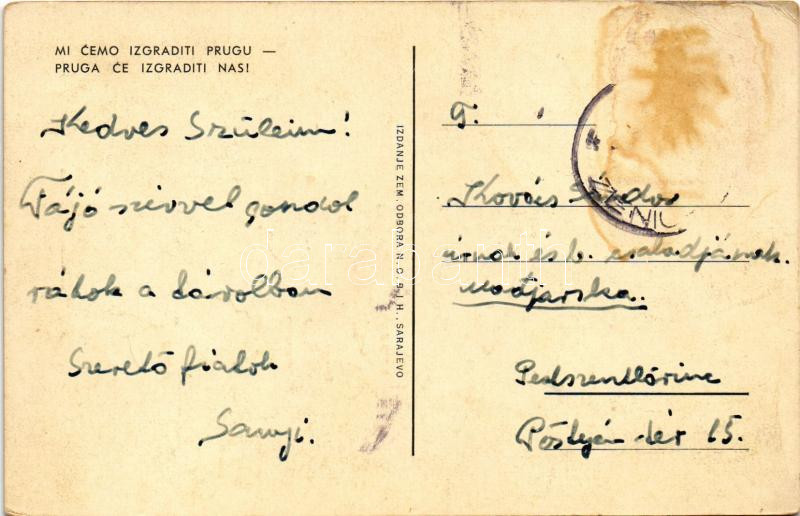 MI ĆEMO IZGRADITI PRUGU —
PRUGA ĆE IZGRADITI NAS!
Kedves Szüleim!
Fájó szivvel gondol
rátok a távolban
Szerető fiatok
Sanyi.
IZDANJE ZEM. ODBORA N. O. B. I H., SARAJEVO
T.
Kovács Sándor
úrnak és b. családjának.
Madjarska.
Pestszentlőrinc
Pöstyén tér 15.
ZENIC
darabanth